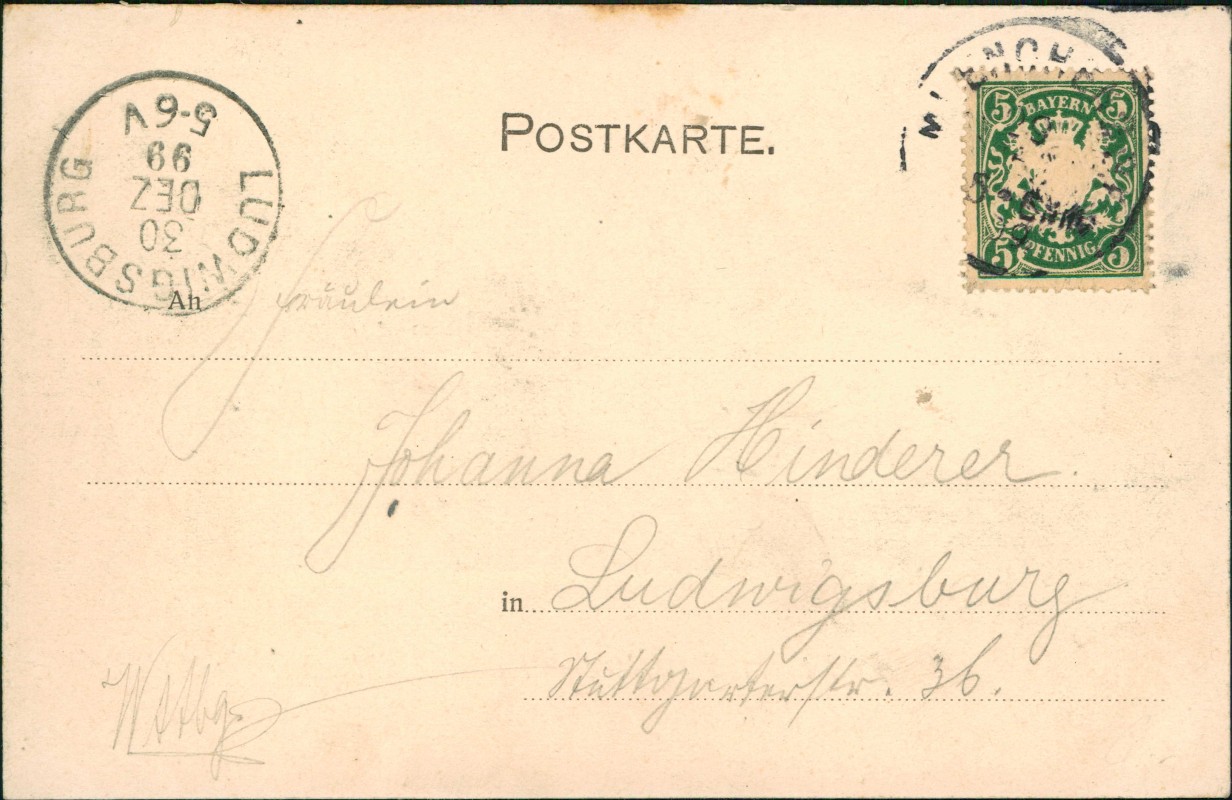 POSTKARTE.
LUDWIGSBURG
30
DEZ
99
5-6V
MUENCHEN
5 BAYERN 5
5 PFENNIG 5
An Fräulein
Johanna Hinderer.
in Ludwigsburg
Stuttgarterstr. 36.
Wttbg.